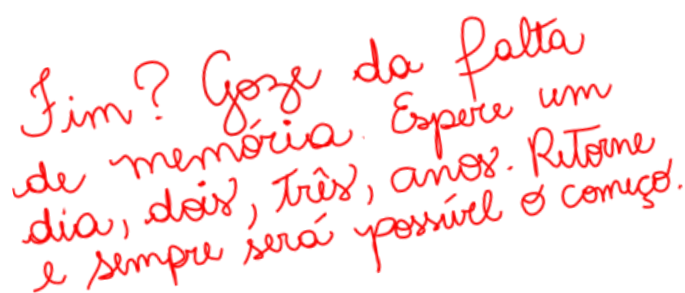 Fim? Goze da falta
de memória. Espere um
dia, dois, três, anos. Retorne
e sempre será possível o começo.